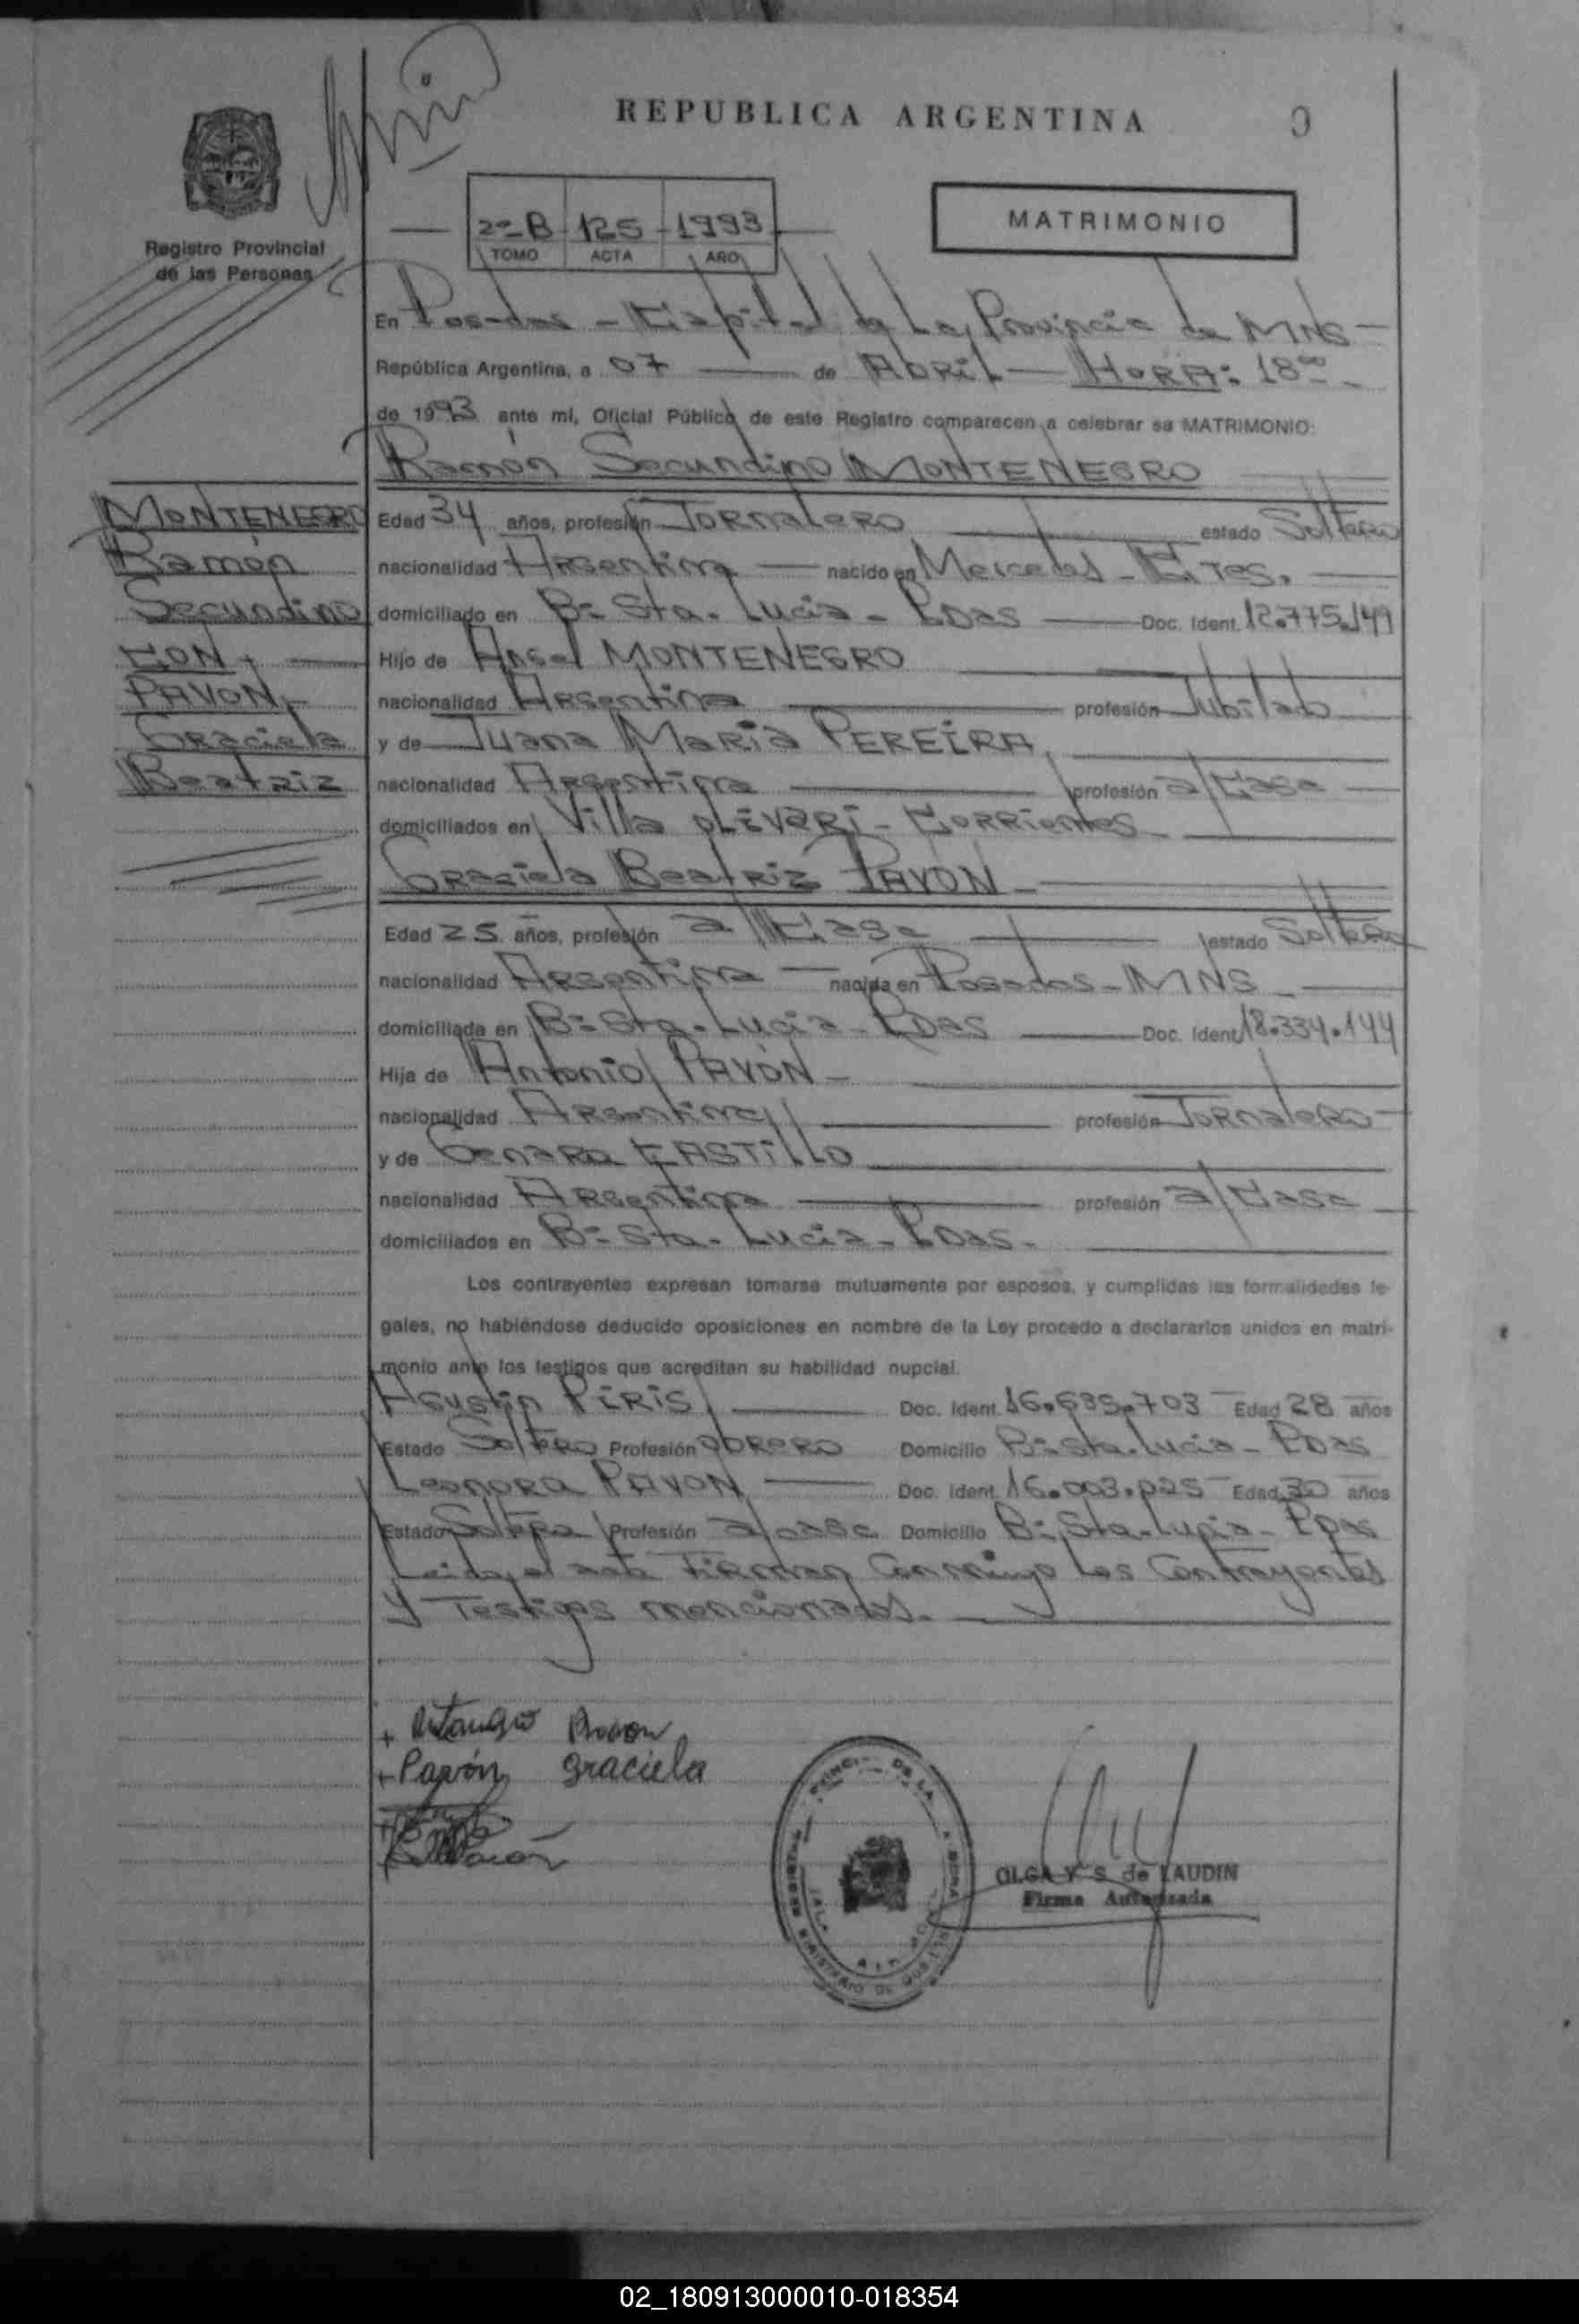 REPUBLICA ARGENTINA
Registro Provincial
de las Personas
2º B 125 1993
TOMO ACTA AÑO
MATRIMONIO
En Posadas - Capital de La Provincia de MNS -
República Argentina, a 07 de ABRIL - HORA: 18ºº -
de 1993 ante mi, Oficial Público de este Registro comparecen a celebrar su MATRIMONIO:
Ramón Secundino MONTENEGRO
MONTENEGRO
Ramón
Secundino
CON
PAVON
Graciela
Beatriz
Edad 34 años, profesión Jornalero estado Soltero
nacionalidad Argentina nacido en Mercedes - Ctes.
domiciliado en Bº Sta. Lucia - Pdas Doc. Ident. 12.775.149
Hijo de Angel MONTENEGRO
nacionalidad Argentina profesión Jubilado
y de Juana Maria PEREIRA
nacionalidad Argentina profesión a/casa
domiciliados en Villa oLivari - Corrientes
Graciela Beatriz PAVON -
Edad 25 años, profesión a/casa estado Soltera
nacionalidad Argentina nacida en Posadas - MNS
domiciliada en Bº Sta. Lucia - Pdas Doc. Ident. 18.334.144
Hija de Antonio PAVON -
nacionalidad Argentina profesión Jornalero
y de Genara CASTILLO
nacionalidad Argentina profesión a/casa
domiciliados en Bº Sta. Lucia - Pdas.
Los contrayentes expresan tomarse mutuamente por esposos, y cumplidas las formalidades le-
gales, no habiéndose deducido oposiciones en nombre de la Ley procedo a declararlos unidos en matri-
monio ante los testigos que acreditan su habilidad nupcial.
Agustin PIRIS Doc. Ident. 16.695.703 Edad 28 años
Estado Soltero Profesión obrero Domicilio Bº Sta. Lucia - Pdas
Leonora PAVON Doc. Ident. 16.003.025 Edad 30 años
Estado Soltera Profesión a/casa Domicilio Bº Sta. Lucia - Pdas
Leida el acta Firman Conmigo Los Contrayentes
y Testigos mencionados.
+ Pavón graciela
OLGA Y. S. de LAUDIN
Firma Autorizada
02_180913000010-018354